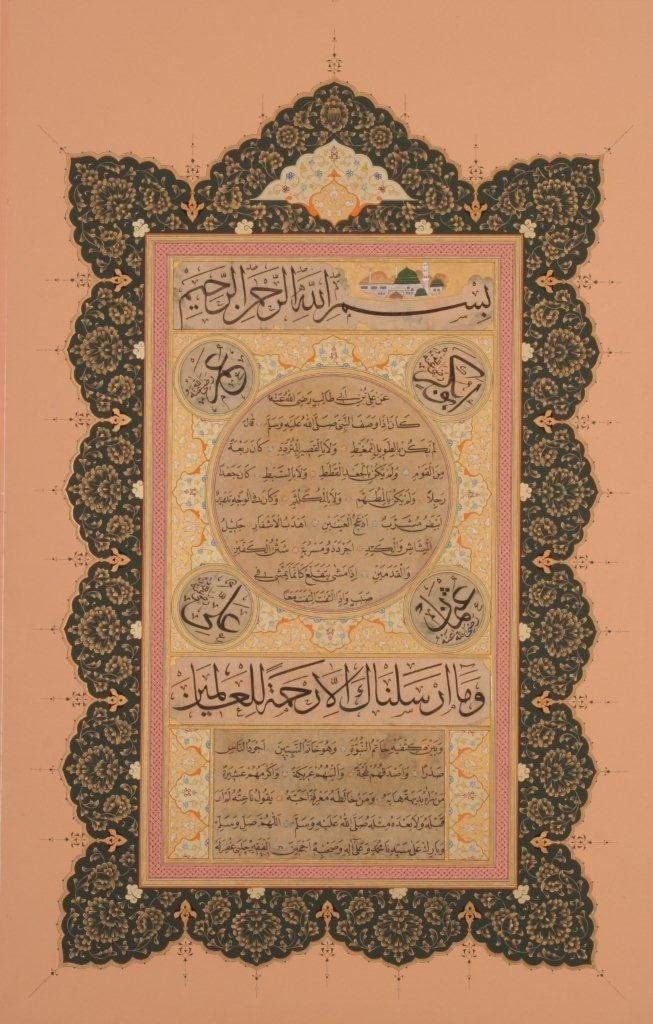 بسم الله الرحمن الرحيم
ابو بكر رضي الله عنه
عمر رضي الله عنه
عن علي بن ابي طالب رضي الله عنه
كان اذا وصف النبي صلى الله عليه وسلم قال
لم يكن بالطويل الممغط ولا بالقصير المتردد كان ربعة
من القوم ولم يكن بالجعد القطط ولا بالسبط كان جعدا
رجلا ولم يكن بالمطهم ولا بالمكلثم وكان في الوجه تدوير
ابيض مشرب ادعج العينين اهدب الاشفار جليل
المشاش والكتد اجرد ذو مسربة شثن الكفين
والقدمين اذا مشى يتقلع كانما يمشي في
صبب واذا التفت التفت معا
عثمان رضي الله عنه
علي رضي الله عنه
وما ارسلناك الا رحمة للعالمين
وبين كتفيه خاتم النبوة وهو خاتم النبيين اجود الناس
صدرا واصدقهم لهجة والينهم عريكة واكرمهم عشيرة
من راه بديهة هابه ومن خالطه معرفة احبه يقول ناعته لم ار
قبله ولا بعده مثله صلى الله عليه وسلم اللهم صل وسلم
وبارك على سيدنا محمد وعلى اله وصحبه اجمعين الفقير